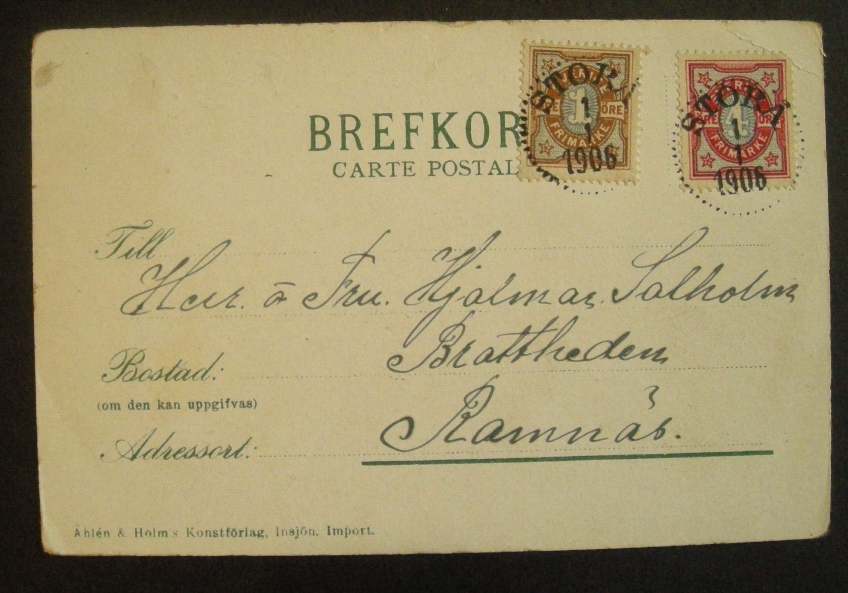 BREFKOR
CARTE POSTAL
STORÅ
1
1
1906
1
ÖRE
FRIMÄRKE
STORÅ
1
1
1906
1
ÖRE
FRIMÄRKE
Till
Herr. o Fru. Hjalmar Salholm
Brattheden
Bostad:
(om den kan uppgifvas)
Ramnäs.
Adressort:
Åhlén & Holm's Konstförlag, Insjön. Import.